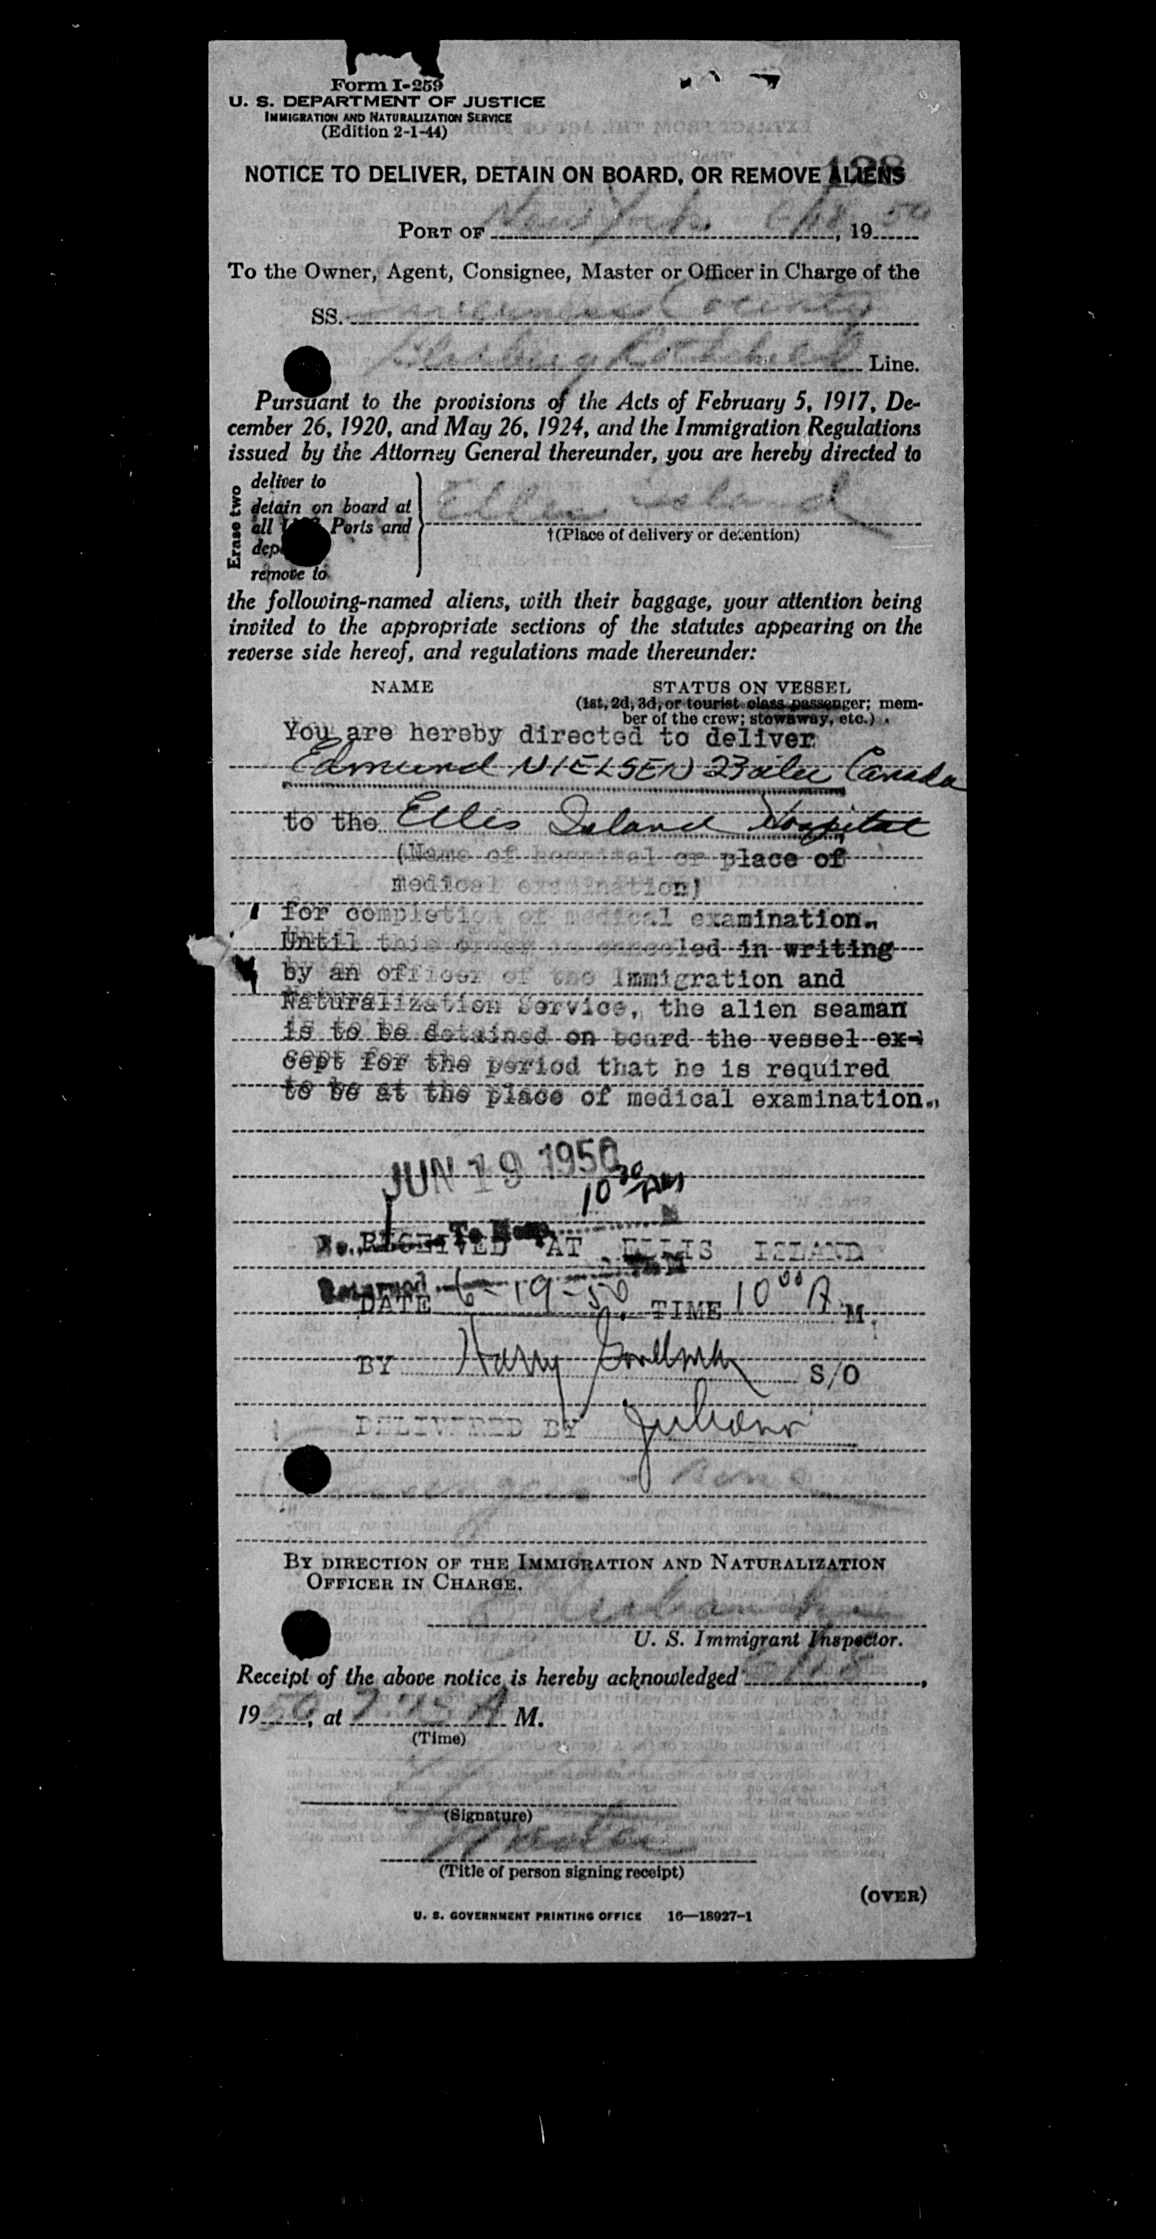 Form I-259
U. S. DEPARTMENT OF JUSTICE
IMMIGRATION AND NATURALIZATION SERVICE
(Edition 2-1-44)
128
NOTICE TO DELIVER, DETAIN ON BOARD, OR REMOVE ALIENS
PORT OF New York 6/18, 1950
To the Owner, Agent, Consignee, Master or Officer in Charge of the
SS. County
Line.
Pursuant to the provisions of the Acts of February 5, 1917, De-
cember 26, 1920, and May 26, 1924, and the Immigration Regulations
issued by the Attorney General thereunder, you are hereby directed to
Erase two
deliver to
detain on board at
all Ports and
remove to
Ellis Island
†(Place of delivery or detention)
the following-named aliens, with their baggage, your attention being
invited to the appropriate sections of the statutes appearing on the
reverse side hereof, and regulations made thereunder:
NAME STATUS ON VESSEL
(1st, 2d, 3d, or tourist class passenger; mem-
ber of the crew; stowaway, etc.)
You are hereby directed to deliver
Edmund NIELSEN 23 Canada
to the Ellis Island Hospital
(Name of hospital or place of
medical examination)
for completion of medical examination.
Until this order is canceled in writing
by an officer of the Immigration and
Naturalization Service, the alien seaman
is to be detained on board the vessel ex-
cept for the period that he is required
to be at the place of medical examination.
JUN 19 1950
10 30 AM
To Hosp.
RECEIVED AT ELLIS ISLAND
Returned
DATE 6-19-50 TIME 10 00 A M.
BY Harry S/O
DELIVERED BY Juliano
BY DIRECTION OF THE IMMIGRATION AND NATURALIZATION
OFFICER IN CHARGE.
U. S. Immigrant Inspector.
Receipt of the above notice is hereby acknowledged 6/18,
1950, at A M.
(Time)
(Signature)
Master
(Title of person signing receipt)
(OVER)
U. S. GOVERNMENT PRINTING OFFICE 16—18927-1